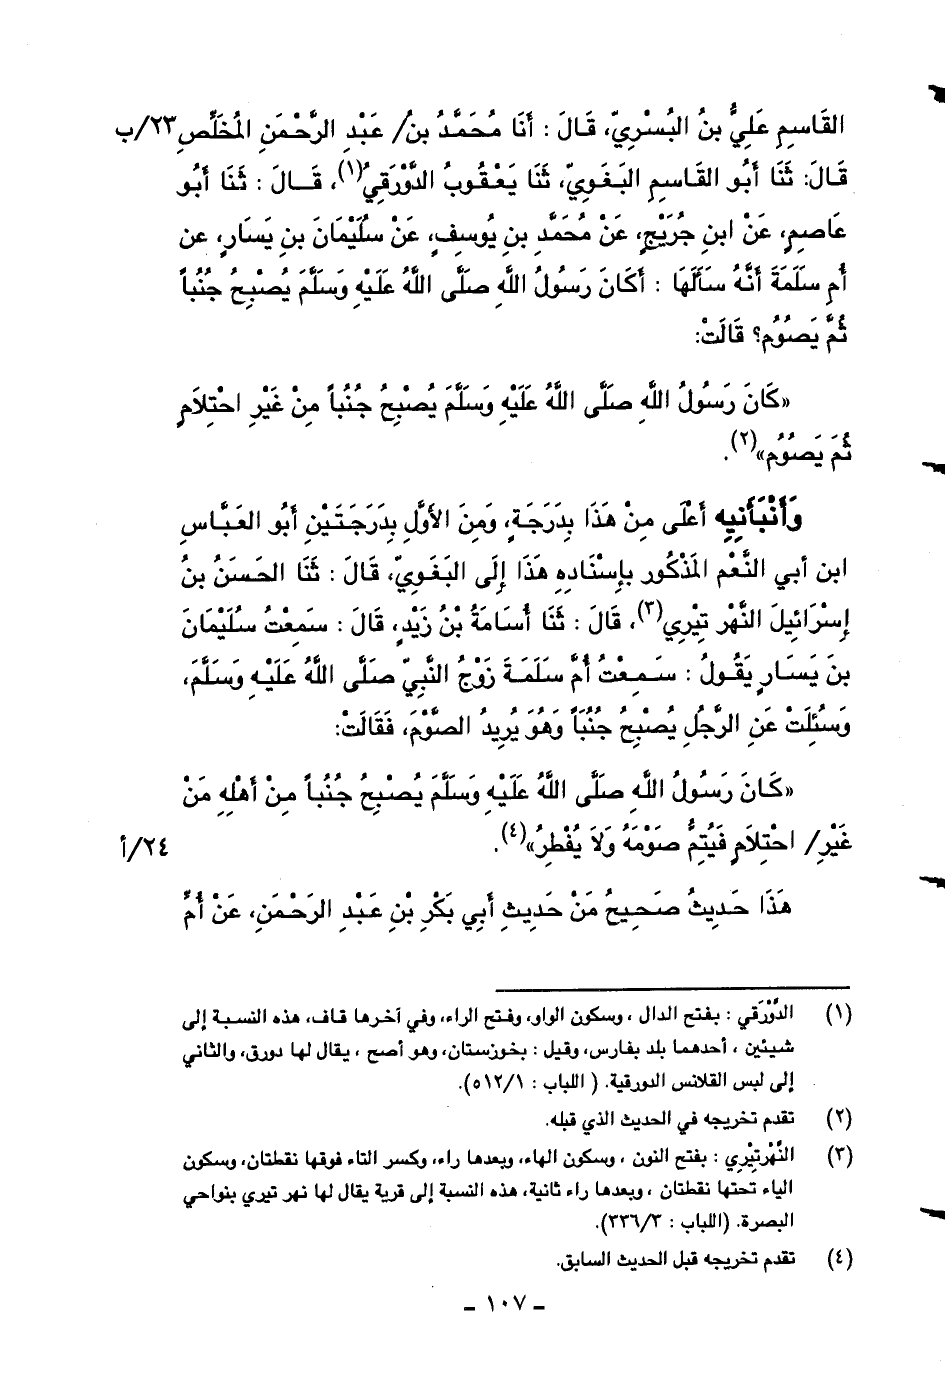 القَاسِمِ عَلِيُّ بنُ البُسْرِيِّ، قَالَ : أَنَا مُحَمَّدُ بنُ/ عَبْدِ الرَّحْمَنِ المُخَلِّصِ ٢٣/ب
قَالَ: ثَنَا أَبُو القَاسِمِ البَغَوِيِّ، ثَنَا يَعْقُوبُ الدَّوْرَقِيُّ(١)، قَـالَ : ثَنَا أَبُو
عَاصِمٍ، عَنْ ابنِ جُرَيْجٍ، عَنْ مُحَمَّدِ بنِ يُوسفٍ، عَنْ سُلَيْمَانَ بنِ يَسَارٍ، عن
أُمِ سَلَمَةَ أَنَّهُ سَأَلَهَا : أَكَانَ رَسُولُ اللَّهِ صَلَّى اللَّهُ عَلَيْهِ وَسَلَّمَ يُصْبِحُ جُنُباً
ثُمَّ يَصُوُمُ؟ قَالَتْ:
«كَانَ رَسُولُ اللَّهِ صلَّى اللَّهُ عَلَيْهِ وَسَلَّمَ يُصْبِحُ جُنُباً مِنْ غَيْرِ احْتِلَامٍ
ثُمَ يَصوُمُ»(٢).
وَأَنْبَأَنِيِه أَعْلَى مِنْ هَذَا بِدَرَجَةٍ، وَمِنَ الأَوَّلِ بِدَرَجَتَيْنِ أَبُو العَبَّاسِ
ابن أبي النَّعْم المَذْكُور بإِسْنَادِهِ هَذَا إِلَى البَغَوِيِّ، قَالَ : ثَنَا الحَسَنُ بنُ
إِسْرَائِيلَ النَّهْر تِيْرِي(٣)، قَالَ : ثَنَا أُسَامَةُ بْنُ زَيْدٍ، قَالَ : سَمِعْتُ سُلَيْمَانَ
بنَ يَسَـارٍ يَقُـولُ : سَـمِـعْتُ أُمَّ سَلَمَـةَ زَوْجُ النَّبِيِّ صَلَّى اللَّهُ عَلَيْهِ وَسَلَّمَ،
وَسُئِلَتْ عَنِ الرَّجُلِ يُصْبِحُ جُنُبَاً وَهُوَ يُرِيدُ الصَّوْمَ، فَقَالَتْ:
«كَانَ رَسُولُ اللَّهِ صَلَّى اللَّهُ عَلَيْهِ وَسَلَّمَ يُصْبِحُ جُنُباً مِنْ أَهْلِهِ مَنْ
غَيْرِ/ احْتِلَامٍ فَيُتِمُّ صَوْمَهُ وَلاَ يُفْطِرُ»(٤). ٢٤/أ
هَذَا حَدِيثُ صَحِيحُ مَنْ حَدِيثِ أَبِي بَكْرِ بْنِ عَبْدِ الرَحْمَنِ، عَنْ أُمِّ
(١) الدَّوْرَقي : بفتح الدال ، وسكون الواو، وفتح الراء، وفي آخرها قاف، هذه النسبة إلى
شيئين ، أحدهما بلد بفارس، وقيل : بخوزستان، وهو أصح ، يقال لها دورق، والثاني
إلى لبس القلانس الدورقية. ( اللباب : ٥١٢/١).
(٢) تقدم تخريجه في الحديث الذي قبله.
(٣) النَّهْرتِيْرِي : بفتح النون ، وسكون الهاء، وبعدها راء، وكسر التاء فوقها نقطتان، وسكون
الياء تحتها نقطتان ، وبعدها راء ثانية، هذه النسبة إلى قرية يقال لها نهر تيري بنواحي
البصرة. (اللباب : ٣٣٦/٣).
(٤) تقدم تخريجه قبل الحديث السابق.
- ١٠٧ -